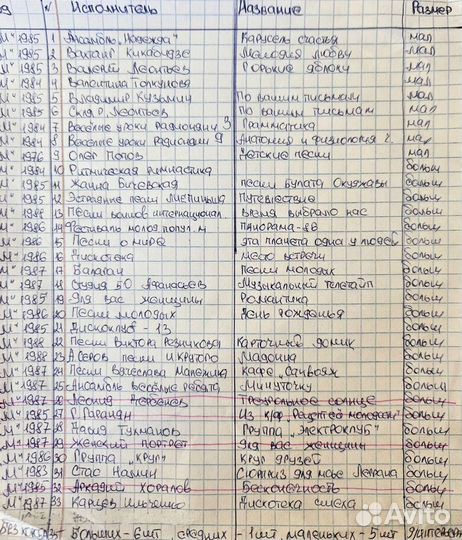 Исполнитель Название Размер
М" 1985 1 Ансамбль „Надежда" Карусель счастья мал
М" 1985 2 Вахтанг Кикабидзе Мелодия любви мал
М" 1985 3 Валерий Леонтьев Горькие яблоки мал
М" 1984 4 Валентина Толкунова мал
М" 1985 5 Владимир Кузьмин По вашим письмам мал
М" 1985 6 Скляр, Леонтьев По вашим письмам мал
М" 1984 7 Весёлые уроки радионяни 3 Грамматика мал
М" 1984 8 Весёлые уроки радионяни 9 Анатомия и физиология ч. мал
М" 1976 9 Олег Попов Детские песни мал
М" 1984 10 Ритмическая гимнастика больш
М" 1985 11 Жанна Бичевская песни Булата Окуджавы больш
М" 1985 12 Эстрадные песни Путешествие больш
М" 1988 13 Песни воинов интернационал. время выбрало нас больш
М" 1986 14 Фестиваль молод. попул. м Панорама-86 больш
М" 1986 15 Песни о мире эта планета одна у людей больш
М" 1986 16 Дискотека место встречи больш
М" 1987 17 Балаган Песни молодых больш
М" 1987 18 Студия БО Афанасьев Музыкальный телетайп больш
М" 1985 19 Для вас женщины Романтика больш
М" 1986 20 Песни молодых День рожденья больш
М" 1985 21 Дискоклуб-13 больш
М" 1988 22 Песни Виктора Резникова Карточный домик больш
М" 1988 23 А Серов песни И Крутого Мадонна больш
М" 1987 24 Песни Вячеслава Малежика Кафе „Саквояж" больш
М" 1987 25 Ансамбль Весёлые ребята Минуточку больш
М" 1987 26 Леонид Дербенев больш
М" 1985 27 Р. Гаранян Из к/ф больш
М" 1987 28 Тухманов Группа „Электроклуб" больш
М" 1987 29 Женский портрет Для вас женщины больш
М" 1986 30 Группа „Круг" Круг друзей больш
М" 1983 31 Стас Намин Сюрприз для мсье Леграна больш
М" 1985 32 Аркадий Хоралов Бесконечность больш
М" 1987 33 Карцев Ильченко Дискотека смеха больш
Больших - 6 шт средних - 1 шт, маленьких - 5 шт
Avito